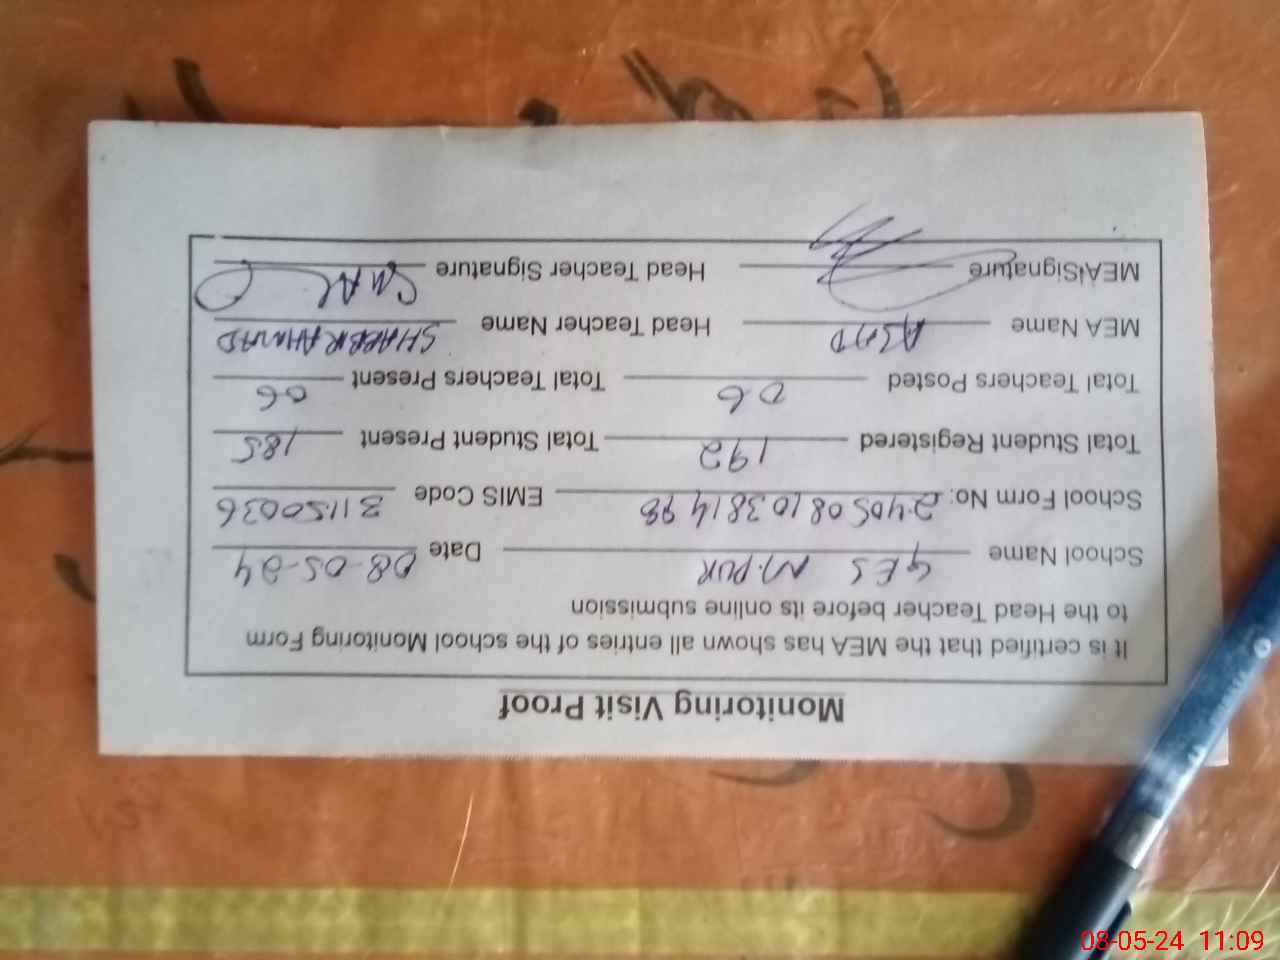 Monitoring Visit Proof
It is certified that the MEA has shown all entries of the school Monitoring Form
to the Head Teacher before its online submission
School Name GES M.PUR Date 08-05-24
School Form No: 240508103814 98 EMIS Code 31150036
Total Student Registered 192 Total Student Present 185
Total Teachers Posted 06 Total Teachers Present 06
MEA Name ASAD Head Teacher Name SHABBIR AHMAD
MEA Signature Head Teacher Signature
08-05-24 11:09